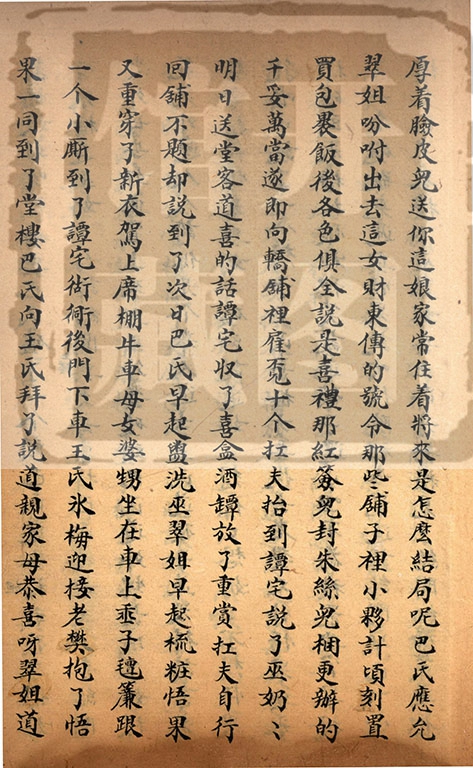 厚着臉皮兒送你這娘家常住着將來是怎麼結局呢巴氏應允
翠姐吩咐出去這女財東傳的號令那些舖子裡小夥計頃刻置
買包裹飯後各色俱全說是喜禮那紅簽兒封朱絲兒捆更辦的
千妥萬當遂即向轎舖裡雇覓十个扛夫抬到譚宅說了巫奶〻
明日送堂客道喜的話譚宅収了喜盒酒罈放了重賞扛夫自行
回舖不題却說到了次日巴氏早起盥洗巫翠姐早起梳粧悟果
又重穿了新衣駕上席棚牛車母女婆甥坐在車上乖子㲯簾跟
一个小厮到了譚宅衚衕後門下車王氏氷梅迎接老樊抱了悟
果一同到了堂樓巴氏向王氏拜了說道親家母恭喜呀翠姐道